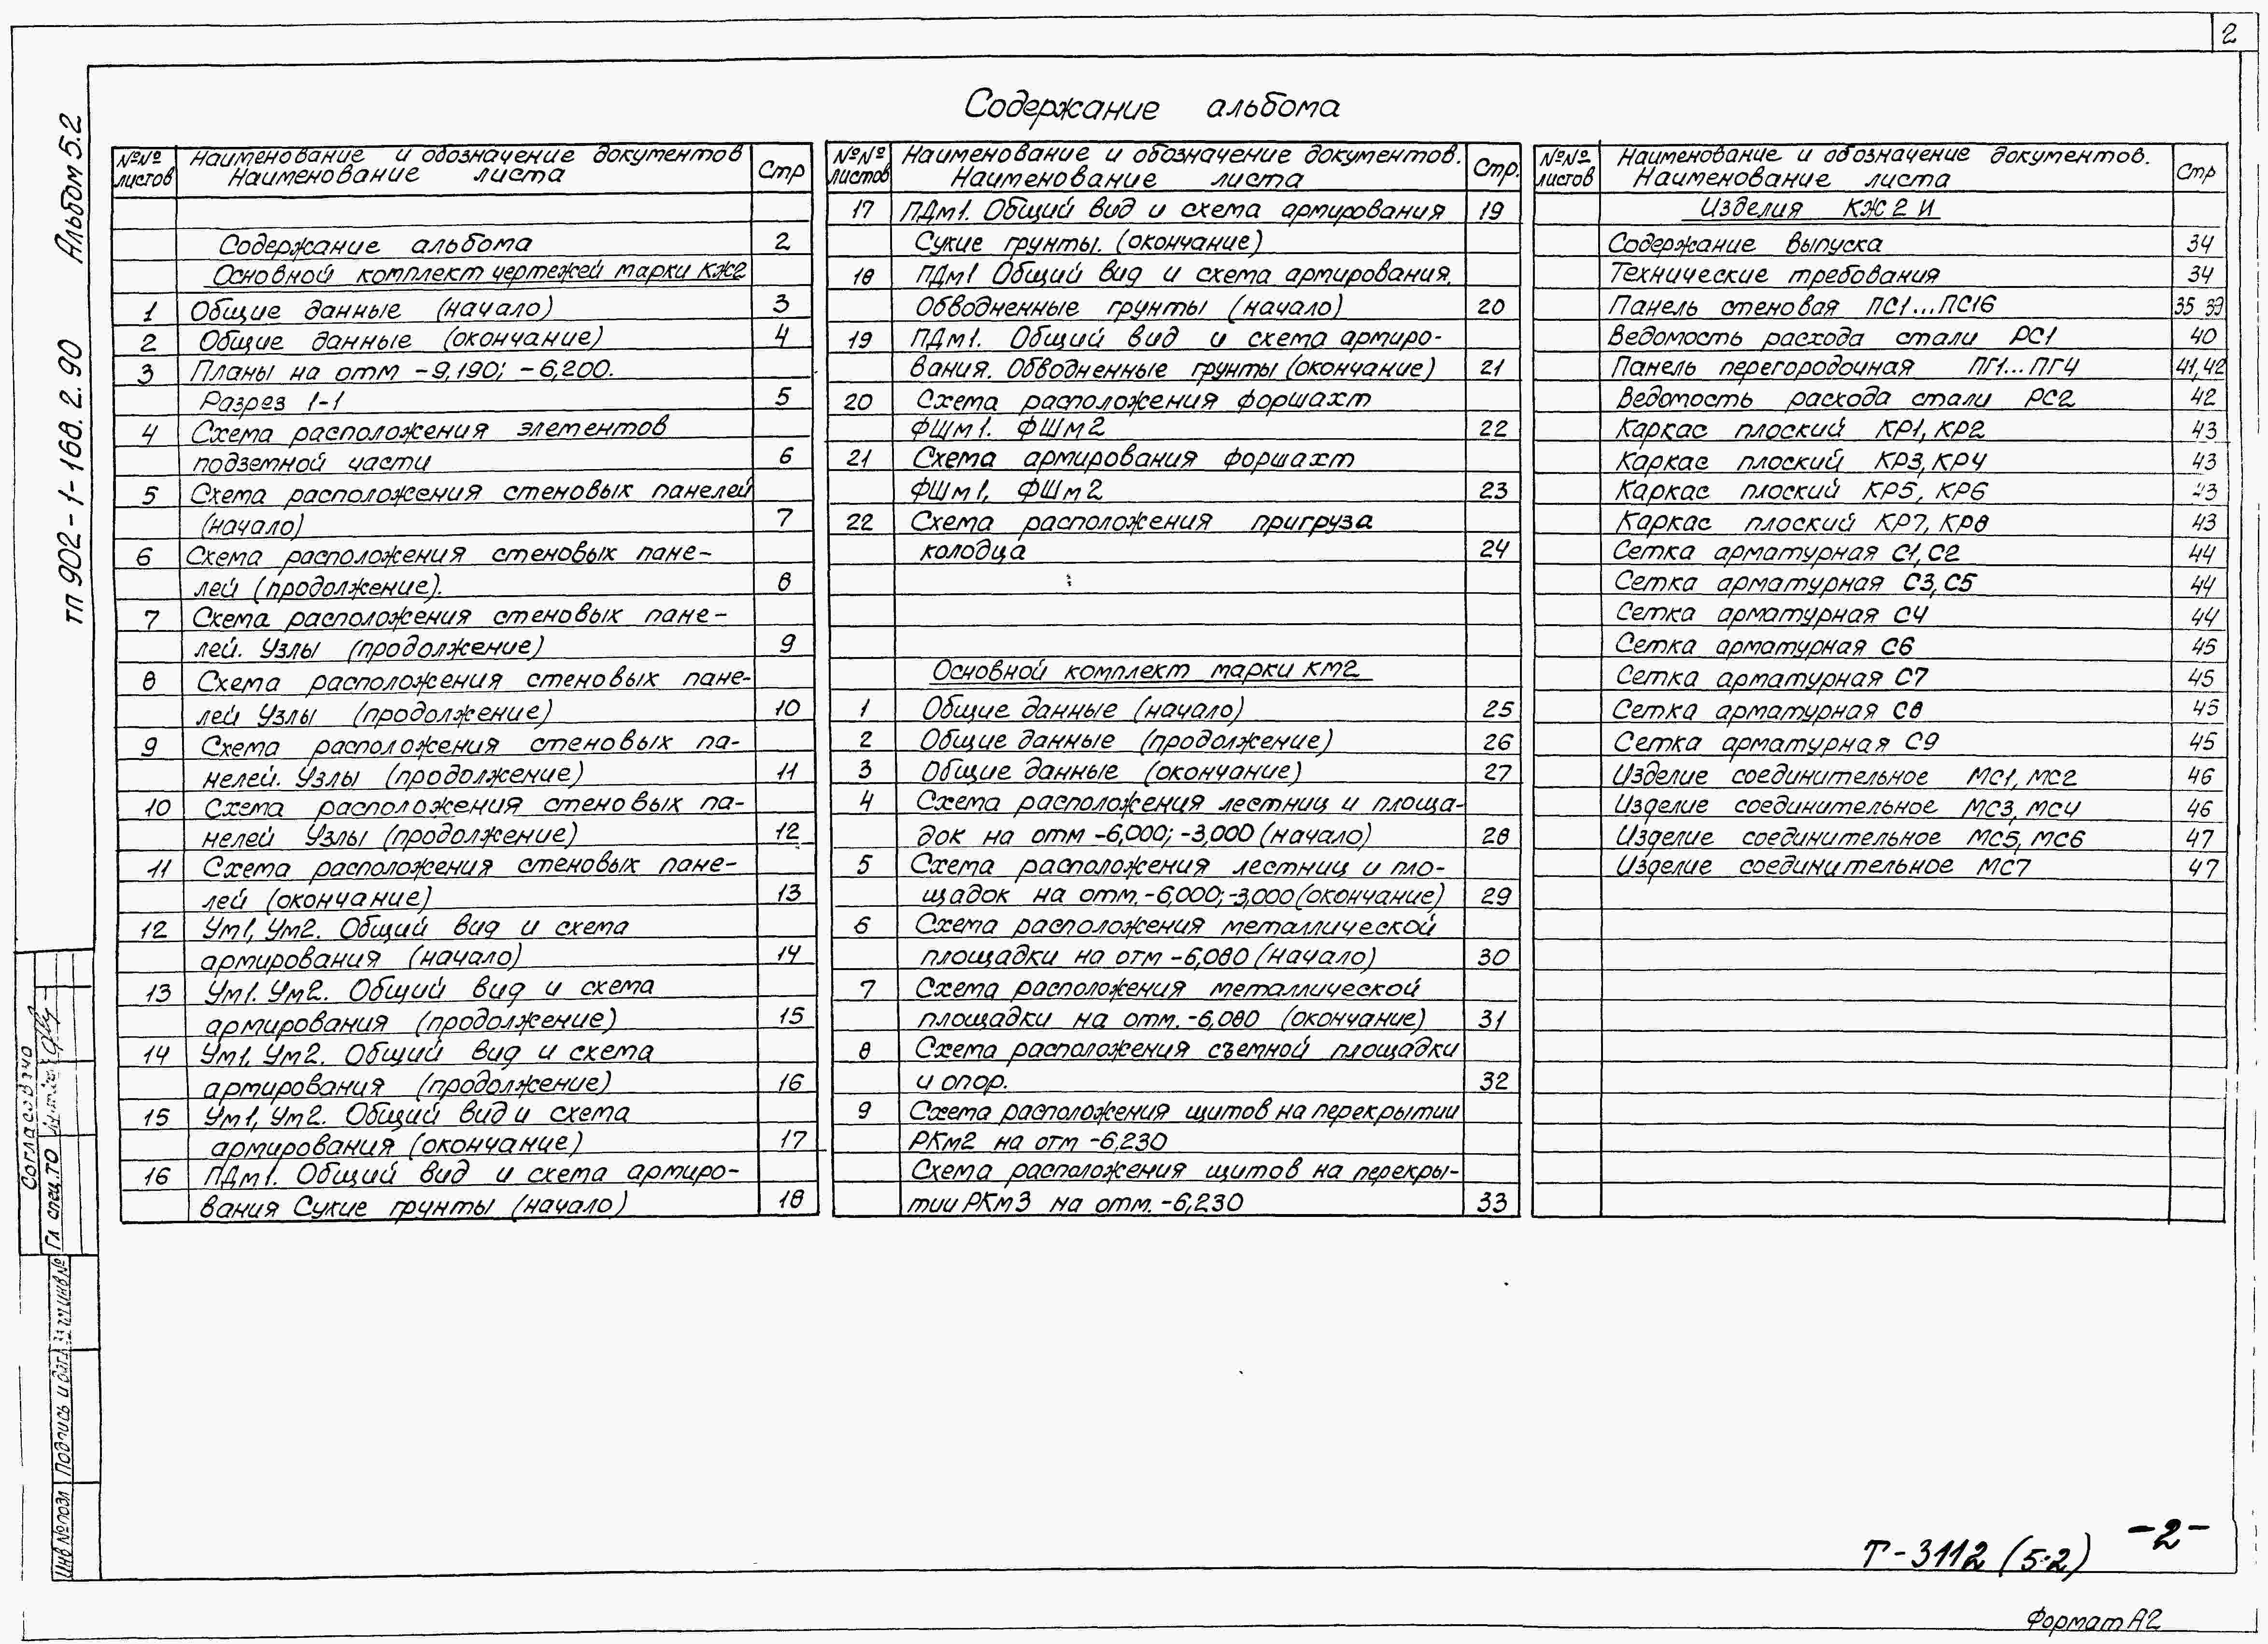 2
Содержание альбома
Альбом 5.2
ТП 902-1-168.2.90
№№ листов
Наименование и обозначение документов
Наименование листа
Стр
Содержание альбома 2
Основной комплект чертежей марки КЖ2
1 Общие данные (начало) 3
2 Общие данные (окончание) 4
3 Планы на отм -9,190; -6,200.
Разрез 1-1 5
4 Схема расположения элементов
подземной части 6
5 Схема расположения стеновых панелей
(начало) 7
6 Схема расположения стеновых пане-
лей (продолжение). 8
7 Схема расположения стеновых пане-
лей. Узлы (продолжение) 9
8 Схема расположения стеновых пане-
лей Узлы (продолжение) 10
9 Схема расположения стеновых па-
нелей. Узлы (продолжение) 11
10 Схема расположения стеновых па-
нелей Узлы (продолжение) 12
11 Схема расположения стеновых пане-
лей (окончание) 13
12 Ум1, Ум2. Общий вид и схема
армирования (начало) 14
13 Ум1. Ум2. Общий вид и схема
армирования (продолжение) 15
14 Ум1, Ум2. Общий вид и схема
армирования (продолжение) 16
15 Ум1, Ум2. Общий вид и схема
армирования (окончание) 17
16 ПДм1. Общий вид и схема армиро-
вания Сухие грунты (начало) 18
№№ листов
Наименование и обозначение документов.
Наименование листа
Стр.
17 ПДм1. Общий вид и схема армирования 19
Сухие грунты. (окончание)
18 ПДм1 Общий вид и схема армирования.
Обводненные грунты (начало) 20
19 ПДм1. Общий вид и схема армиро-
вания. Обводненные грунты (окончание) 21
20 Схема расположения форшахт
ФШм1. ФШм2 22
21 Схема армирования форшахт
ФШм1, ФШм2 23
22 Схема расположения пригруза
колодца 24
Основной комплект марки КМ2
1 Общие данные (начало) 25
2 Общие данные (продолжение) 26
3 Общие данные (окончание) 27
4 Схема расположения лестниц и площа-
док на отм -6,000; -3,000 (начало) 28
5 Схема расположения лестниц и пло-
щадок на отм. -6,000; -3,000 (окончание) 29
6 Схема расположения металлической
площадки на отм -6,080 (начало) 30
7 Схема расположения металлической
площадки на отм. -6,080 (окончание) 31
8 Схема расположения съемной площадки
и опор. 32
9 Схема расположения щитов на перекрытии
РКм2 на отм -6,230
Схема расположения щитов на перекры-
тии РКм3 на отм. -6,230 33
№№ листов
Наименование и обозначение документов.
Наименование листа
Стр
Изделия КЖ2И
Содержание выпуска 34
Технические требования 34
Панель стеновая ПС1...ПС16 35 39
Ведомость расхода стали РС1 40
Панель перегородочная ПГ1...ПГ4 41,42
Ведомость расхода стали РС2 42
Каркас плоский КР1, КР2 43
Каркас плоский КР3, КР4 43
Каркас плоский КР5, КР6 43
Каркас плоский КР7, КР8 43
Сетка арматурная С1, С2 44
Сетка арматурная С3, С5 44
Сетка арматурная С4 44
Сетка арматурная С6 45
Сетка арматурная С7 45
Сетка арматурная С8 45
Сетка арматурная С9 45
Изделие соединительное МС1, МС2 46
Изделие соединительное МС3, МС4 46
Изделие соединительное МС5, МС6 47
Изделие соединительное МС7 47
Согласовано
Гл спец. ТО
Подпись и дата
Инв № подл
Т-3112 (5.2) -2-
Формат А2